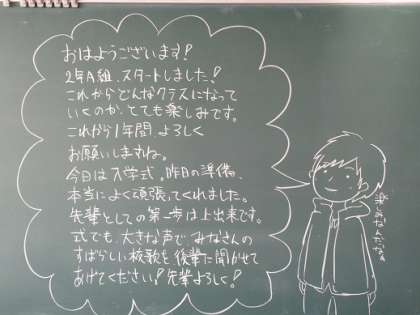 おはようございます!
2年A組、スタートしました!
これからどんなクラスになって
いくのか、とても楽しみです。
これから1年間、よろしく
お願いしますね。
今日は入学式。昨日の準備、
本当によく頑張ってくれました。
先輩としての第一歩は上出来です。
式でも、大きな声で、みなさんの
すばらしい校歌を後輩に聞かせて
あげてください!先輩よろしく!